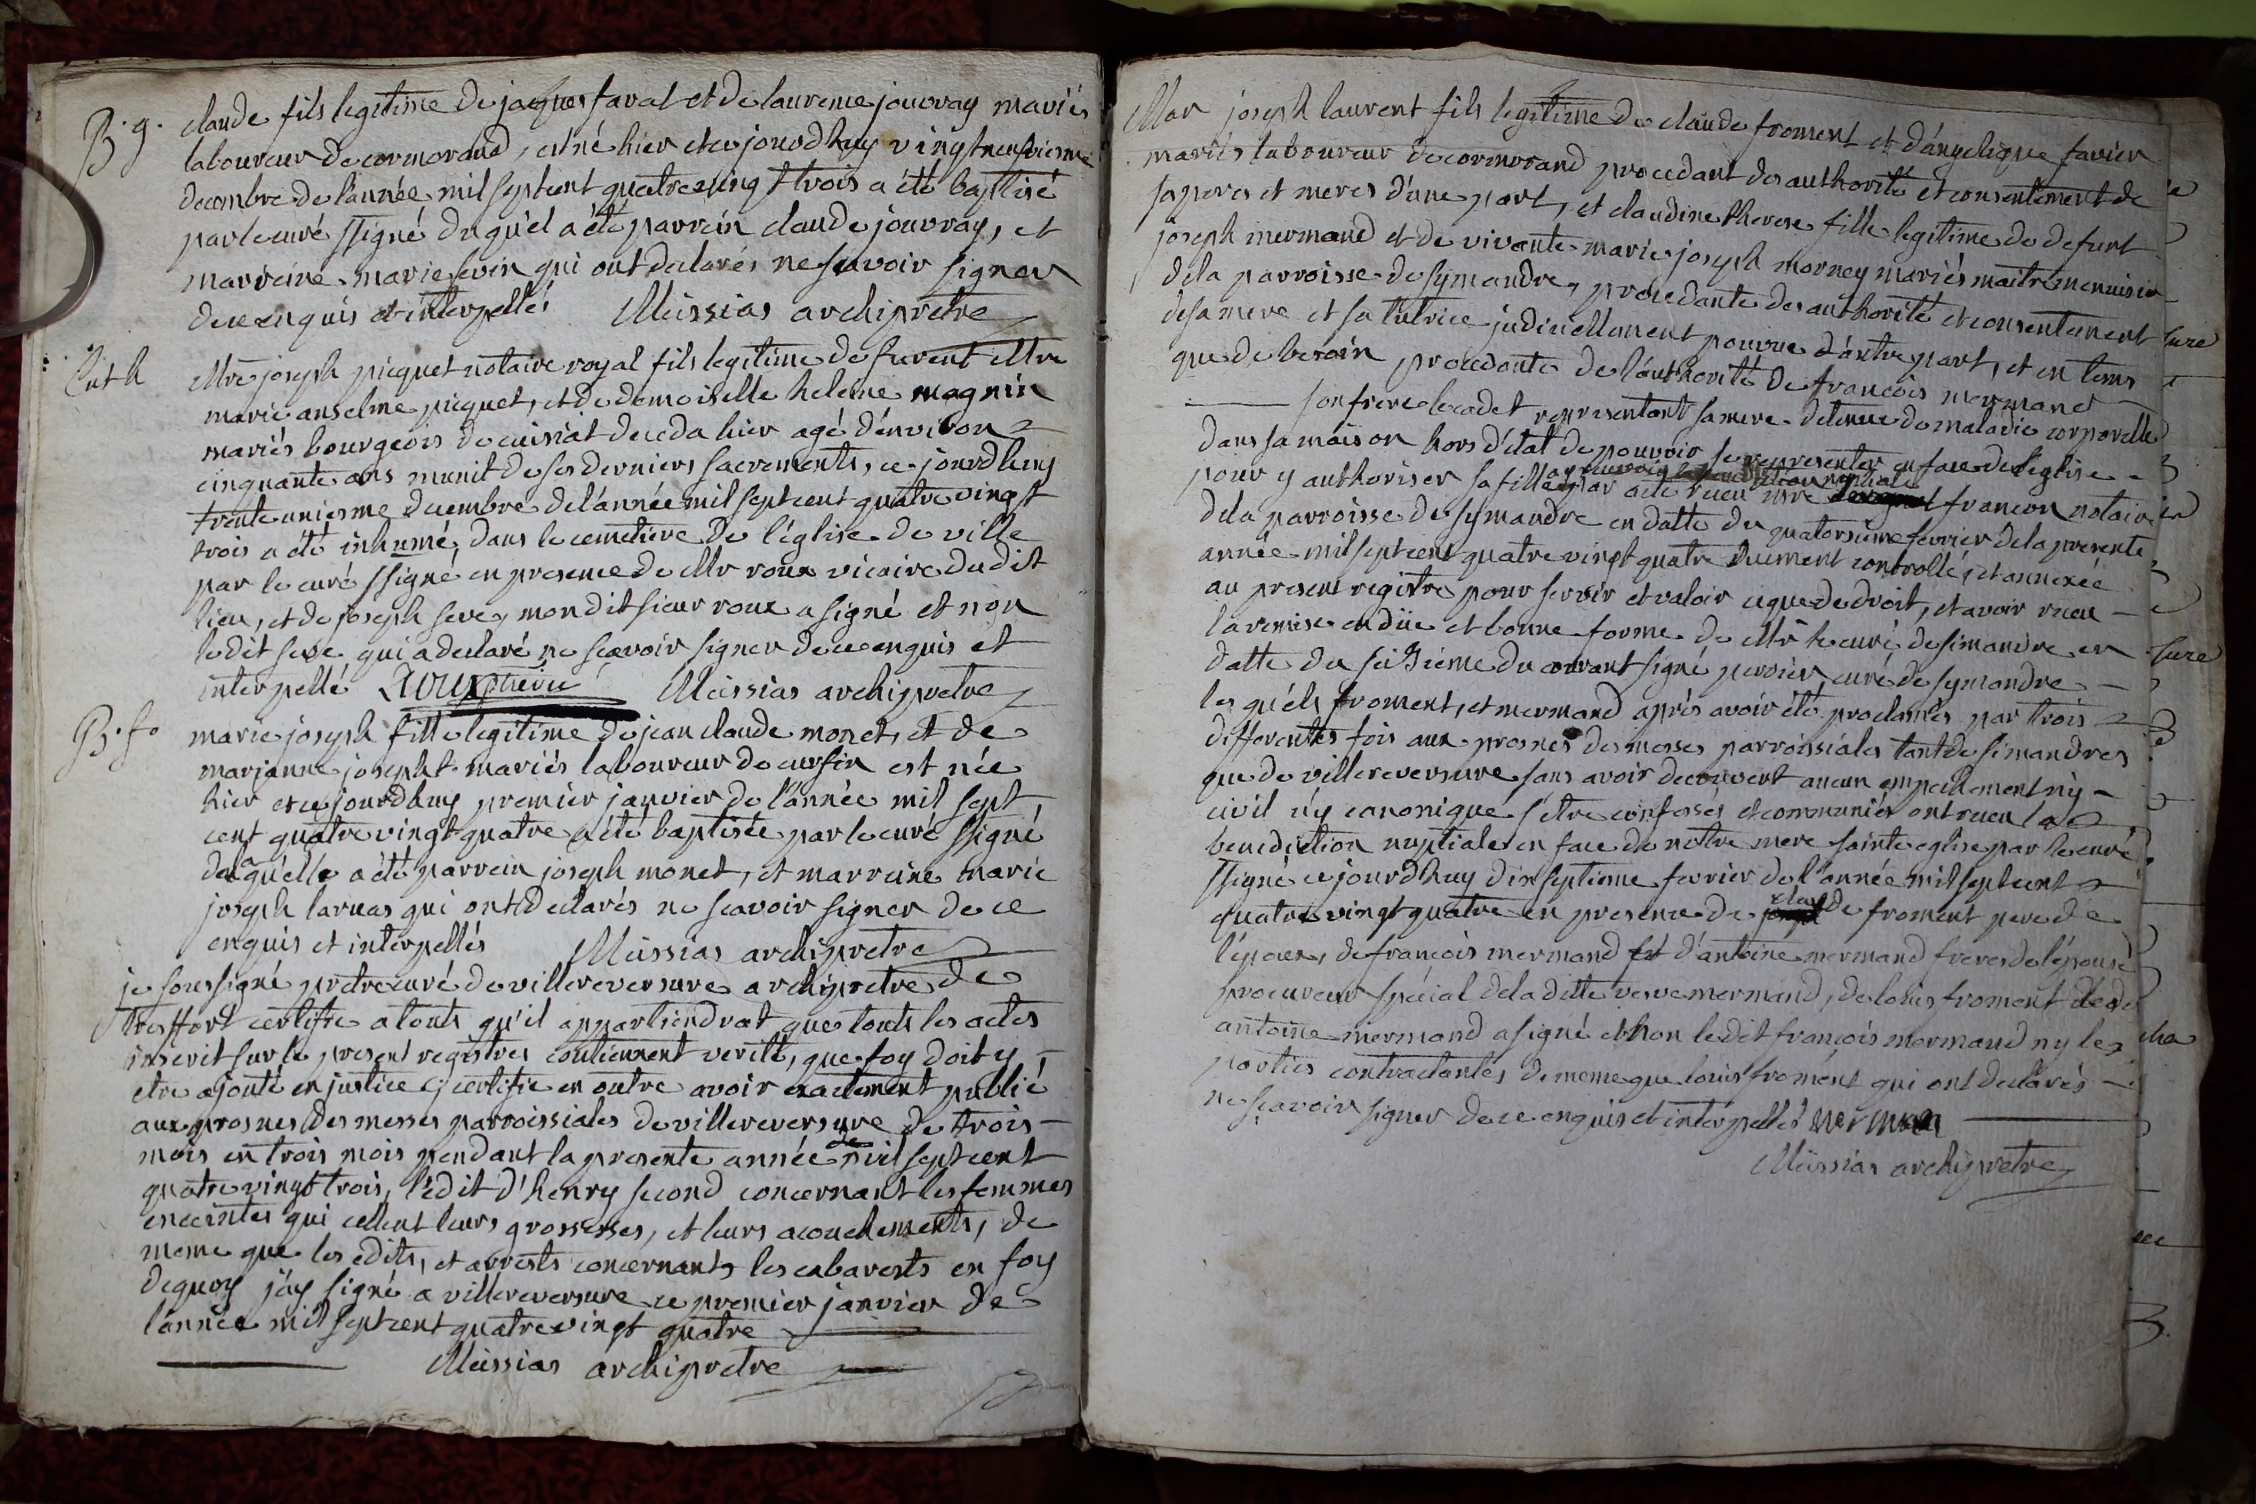 B. g. claude fils legitime de jaques faval et de laurence jouvray mariés
laboureur de cormorand, est né hier et ce jourdhuy vingtneuviesme
decembre de l'année mil septcent quatrevingt trois a été baptisé
par le curé ssigné duquel a été parrein claude jouvray, et
marreine marie sevin qui ont declarés ne scavoir signer
de ce enquis et interpellés Messias archipretre
Mtre joseph picquet notaire royal fils legitime de furent Mtre
marie anselme picquet, et de demoiselle helene magnin
mariés bourgeois de cuisiat deceda hier agé d'environ
cinquante ans munit de ses derniers sacrements, ce jourdhuy
trente uniesme decembre de l'année mil septcent quatre vingt
trois a été inhumé, dans le cemetiere de l'église de ville
par le curé ssigné en presence de Mr roux vicaire dudit
lieu, et de joseph seve, mondit sieur roux a signé et non
ledit seve qui a declaré ne scavoir signer de ce enquis et
interpellé Roux Messias archipretre
B. f. marie joseph fille legitime de jean claude monet, et de
marjanne josepht mariés laboureur de cursin est née
hier et ce jourdhuy premier janvier de l'année mil sept
cent quatre vingt quatre a été baptisée par le curé ssigné
de laquelle a été parrein joseph monet, et marreine marie
joseph laruas qui ont declarés ne scavoir signer de ce
enquis et interpellés Messias archipretre
je soussigné pretre curé de villereversure archipretre de
treffort certifie a touts qu'il appartiendrat que touts les actes
inscrit sur le present registres contiennent verité, que foy doit y
etre ajouté en justice je certifie en outre avoir exactement publié
aux prosnes des messes parroissiales de villereversure de trois
mois en trois mois pendant la presente année de mil septcent
quatrevingt trois, l'édit d'henry second concernant les femmes
enceintes qui cellent leurs grossesses, et leurs acouchements, de
meme que les edits, et arrests concernants les cabarests en foy
dequoy j'ay signé a villereversure ce premier janvier de
l'année mil septcent quatre vingt quatre
Messias archipretre
Mar joseph laurent fils legitime de claude froment et d'angelique favier
mariés laboureur de cormorand procedant des authorité et consentement de
sa peres et meres d'une part, et claudine therese fille legitime de defunt
joseph mermand et de vivante marie joseph morney mariés maitre menuisier
de la parroisse de symandre, procedante des authorité et consentement
de sa mere et sa tutrice judiciellement pourvue d'autre part, et en tems
que de besoin procedante de l'authorité de francois mermand
son frere le cadet representant sa mere detenue de maladie corporelle
dans sa maison hors d'état de pouvoir se representer en face de l'eglise
pour y authoriser sa fille par acte receu Mre francon notaire
de la parroisse de symandre en datte du quatorsieme fevrier de la presente
année mil septcent quatre vingt quatre duement controllé, et annexée
au present registre pour servir et valoir ce que de droit, et avoir receu
la remise en düe et bonne forme de Mr le curé de simandre en
datte du seizieme du courant signé perrier curé de symandre
les quels froment, et mermand aprés avoir été proclamés par trois
differentes fois aux prosnes des messes parroissiales tant de simandres
que de villereversure sans avoir decouvert aucun empechement ny
civil ny canonique s'etre confesés et communiés ont receu la
benediction nuptiale en face de notre mere sainte eglise par le curé
ssigné ce jourdhuy dix septieme fevrier de l'année mil septcent
quatre vingt quatre en presence de claude froment pere de
l'époux, de francois mermand et d'antoine mermand freres de l'épouse
procureur spécial de la ditte veuve mermand, de louis froment
antoine mermand a signé et non le dit francois mermand ny les
parties contractantes de meme que louis froment qui ont declarés
ne scavoir signer de ce enquis et interpellés mermen
Messias archipretre